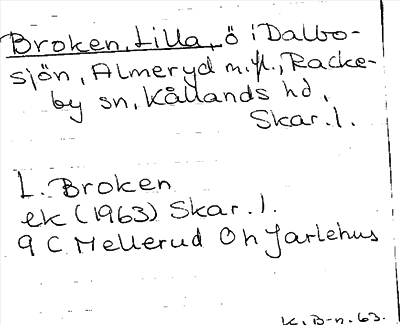 Broken, Lilla, ö i Dalbo-
sjön, Almeryd m.fl., Racke-
by sn, Kållands hd,
Skar. l.
L. Broken
ek (1963) Skar. l.
9 C Mellerud Ö h Jarlehus
K. B-n. 63.